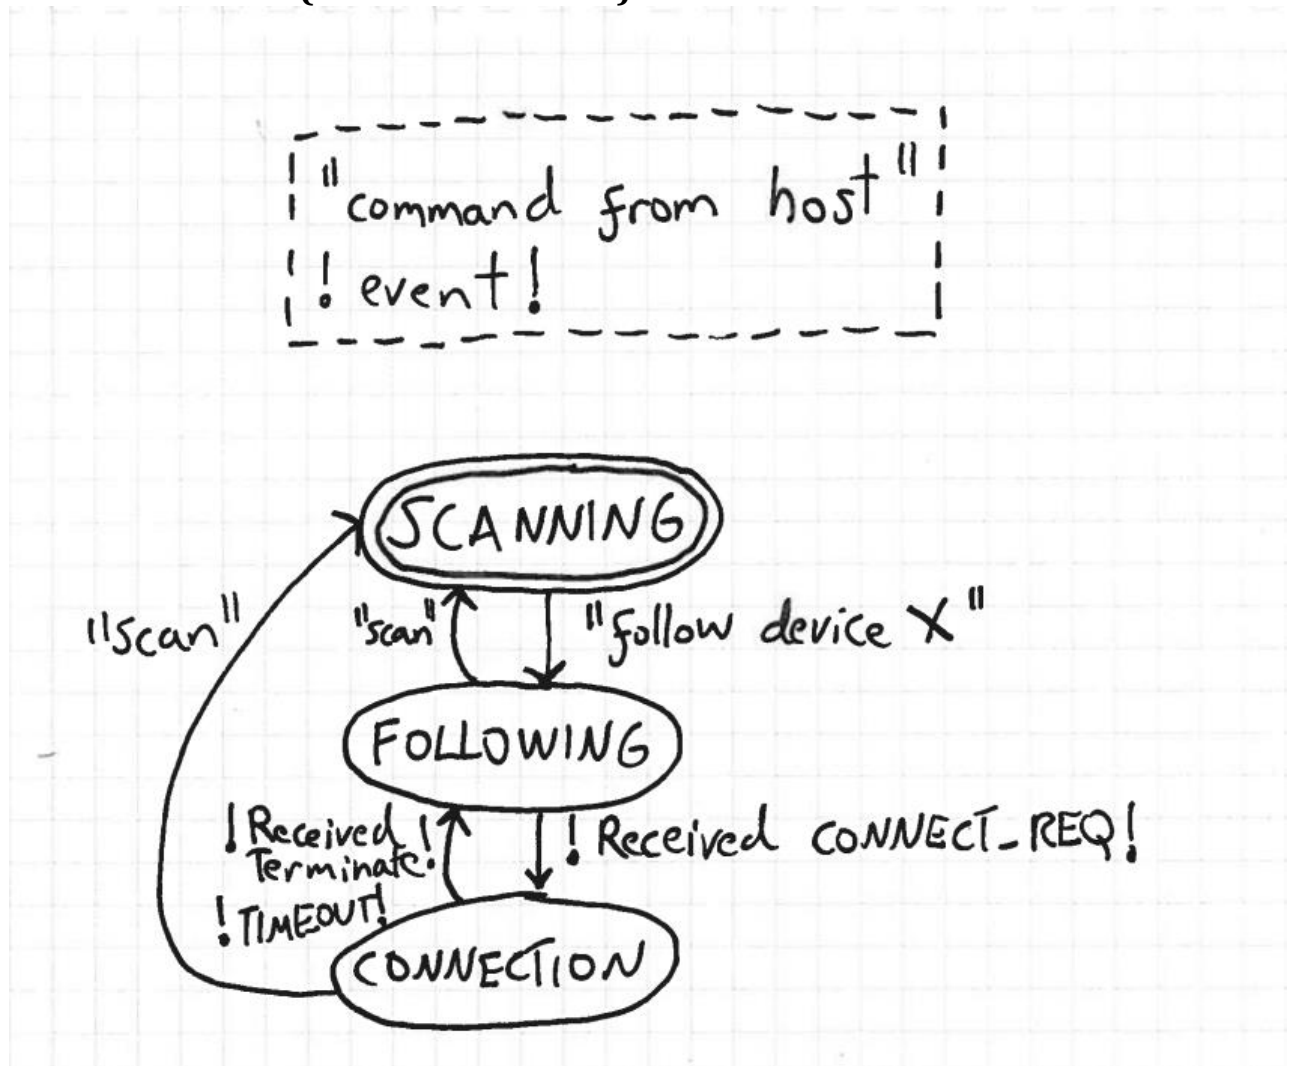 "command from host"
! event !
SCANNING
"Scan"
"scan"
"follow device X"
FOLLOWING
! Received
Terminate !
! Received CONNECT_REQ!
! TIMEOUT!
CONNECTION